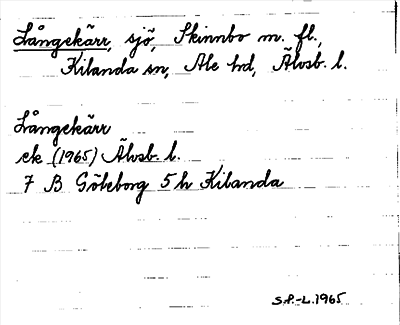 Långekärr, sjö, Skinnbo m. fl.,
Kilanda sn, Ale hd, Älvsb. l.
Långekärr
ek (1965) Älvsb. l.
7 B Göteborg 5 h Kilanda
S.P.-L. 1965